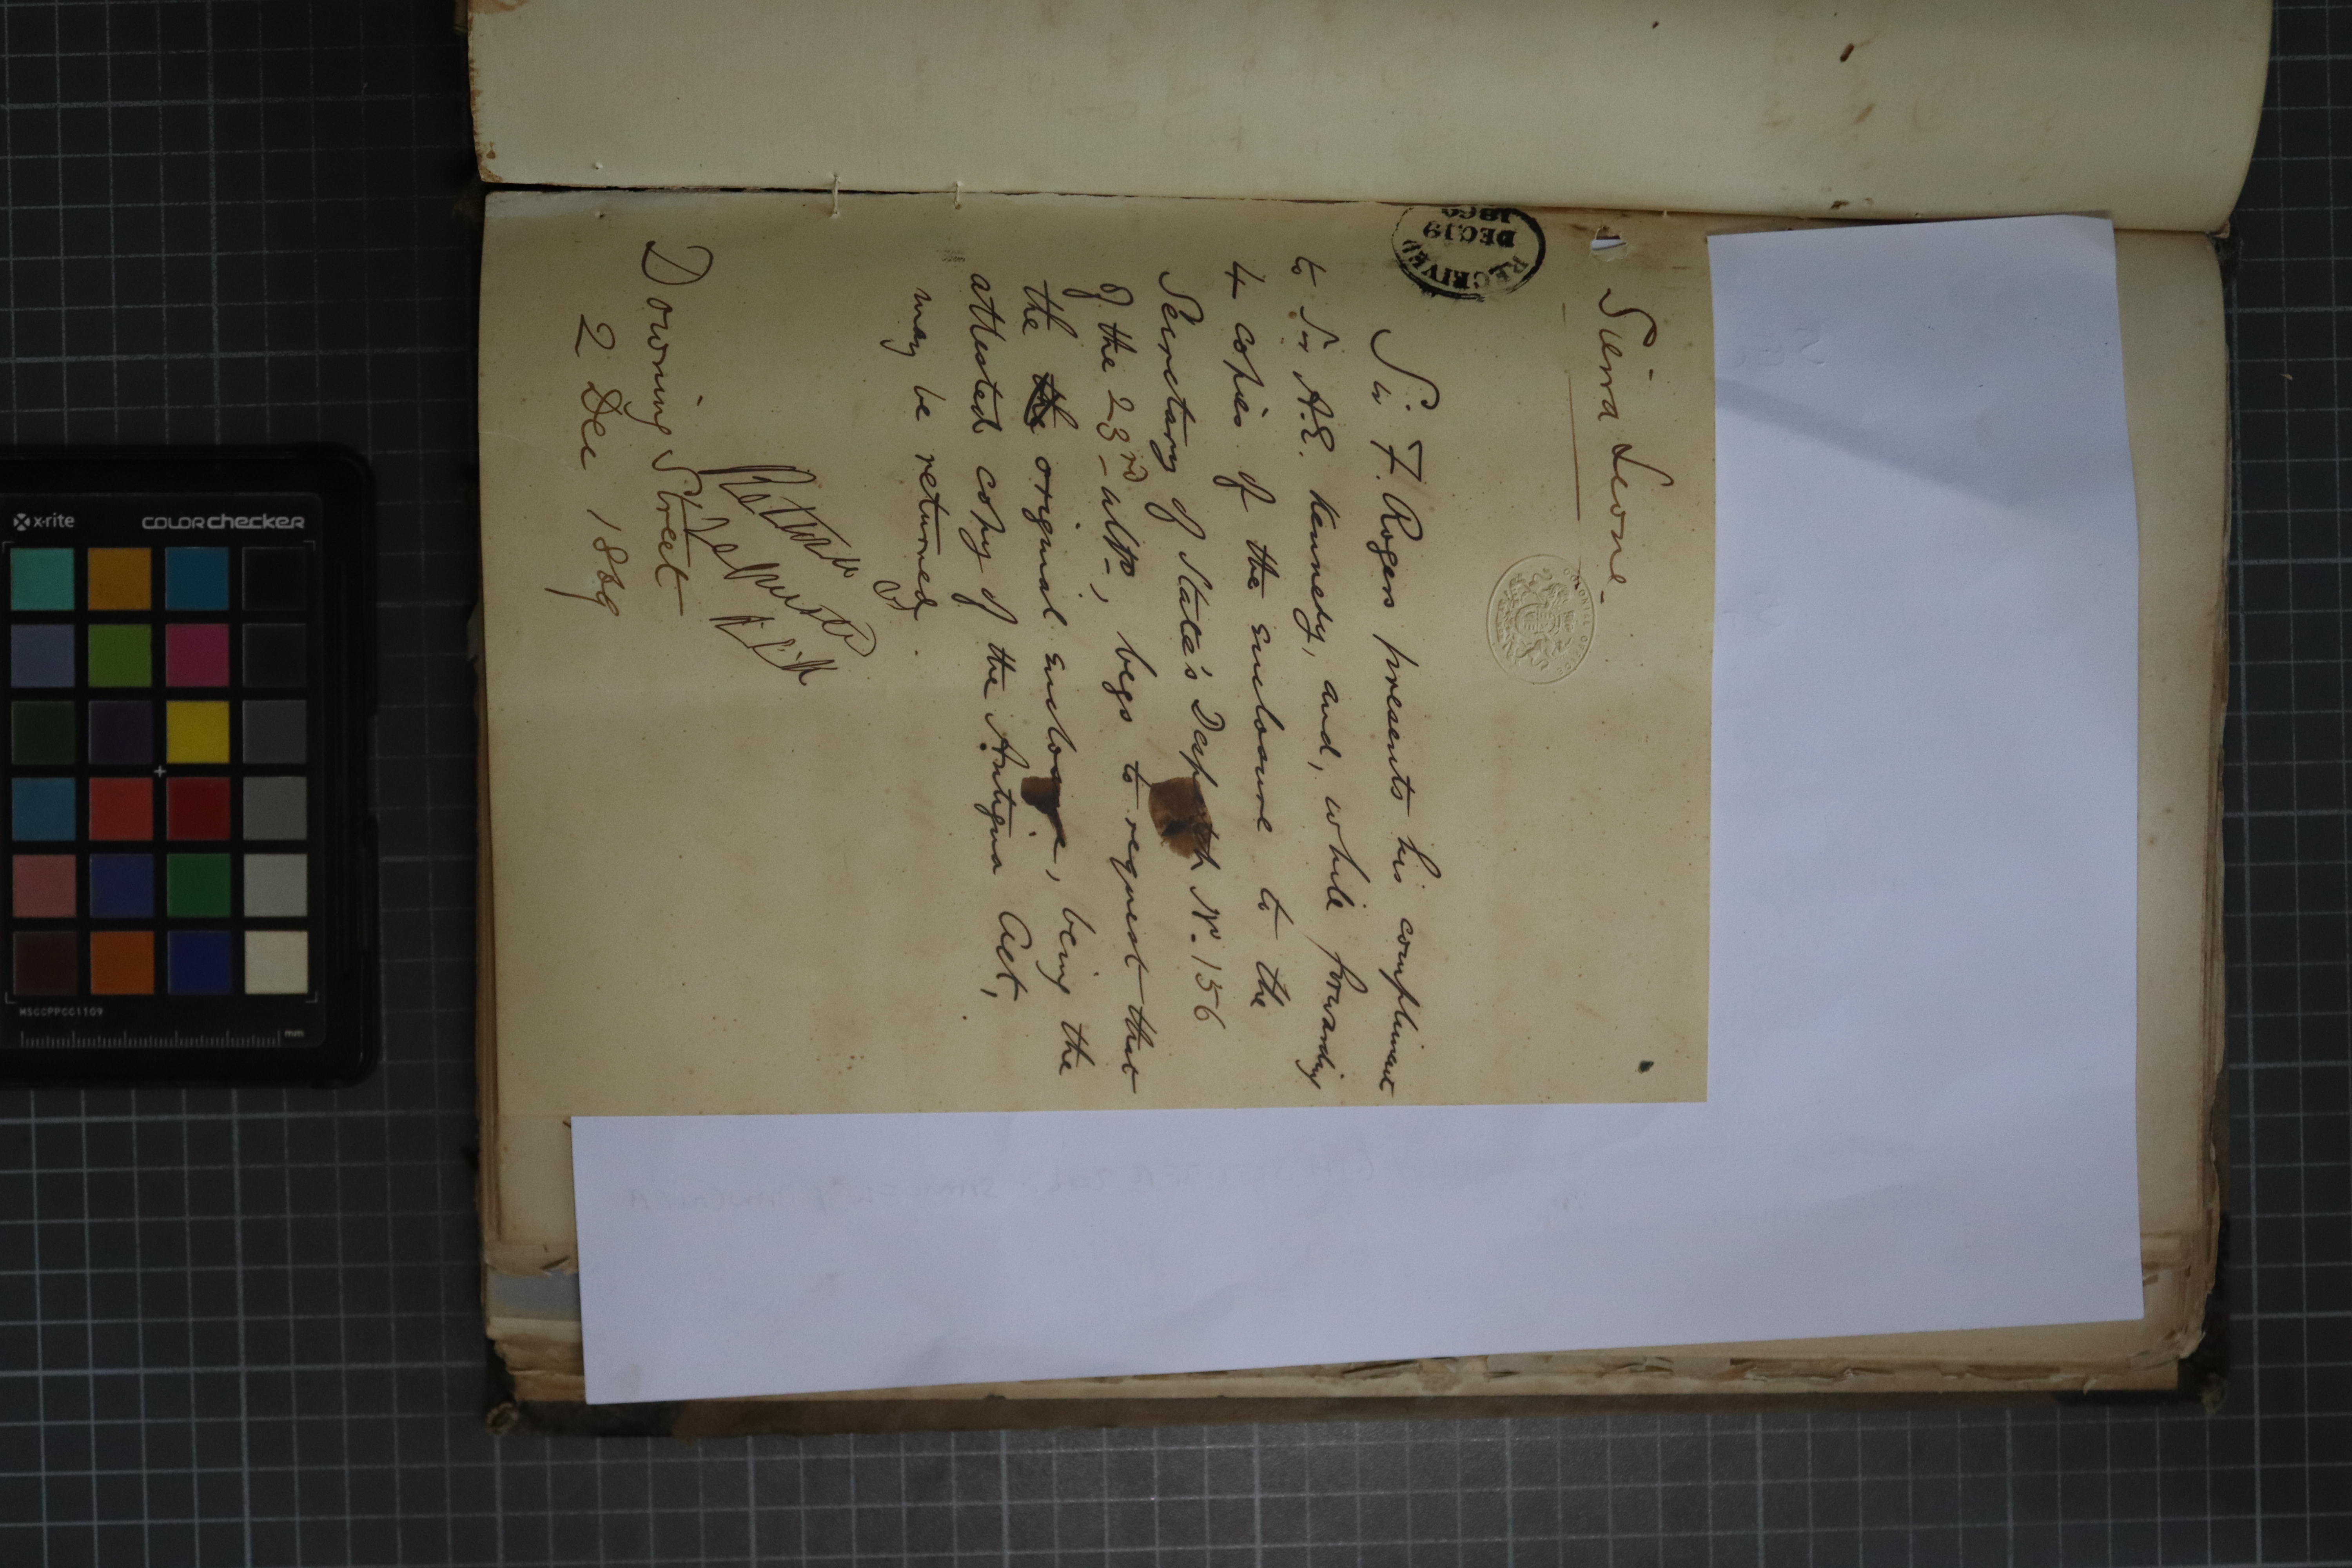 Sierra Leone.
RECEIVED
DEC 19
COLONIAL OFFICE
Sir F. Rogers presents his compliment
to Sir A.E. Kennedy, and, while forwarding
4 copies of the enclosure to the
Secretary of State's Despatch No. 156
of the 23rd ulto, begs to request that
the the original enclosure, being the
attested copy of the Antigua Act,
may be returned.
Downing Street
2 Dec 1869
x-rite
colorchecker
MSCCPPCC1109
mm